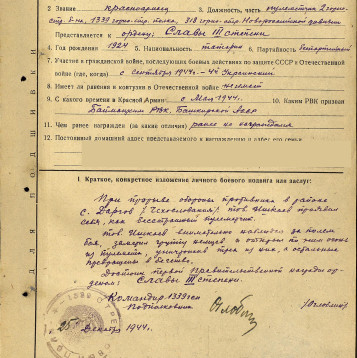 2 Звание красноармеец 3. Должность, часть пулеметчик 2 горно-
стр. б-на, 1339 горно-стр. полка, 318 горно-стр. Новороссийской дивизии
Представляется к ордену Славы III степени
4. Год рождения 1924 5. Национальность татарин 6. Партийность беспартийный
7. Участие в гражданской войне, последующих боевых действиях по защите СССР и Отечественной
войне (где, когда) с сентября 1944г. - 4й Украинский
8. Имеет ли ранения и контузии в Отечественной войне не имеет
9. С какого времени в Красной Армии с мая 1944г. 10. Каким РВК призван
Баймакским РВК, Башкирской АССР
11. Чем ранее награжден (за какие отличия) ранее не награждался
12. Постоянный домашний адрес представляемого к награждению и адрес его семьи
I. Краткое, конкретное изложение личного боевого подвига или заслуг:
При прорыве обороны противника в районе
с. (Чехословакия) тов. проявил
себя, как бесстрашный пулеметчик.
тов. внимательно наблюдал за полем
боя, заметил группу немцев и открыл по ним огонь
из пулемета уничтожив трех из них, а остальные
превращены в бегство.
Достоин первой правительственной награды ор-
дена: Славы III степени.
Командир 1339 гсп
Подполковник
25 декабря 1944г.